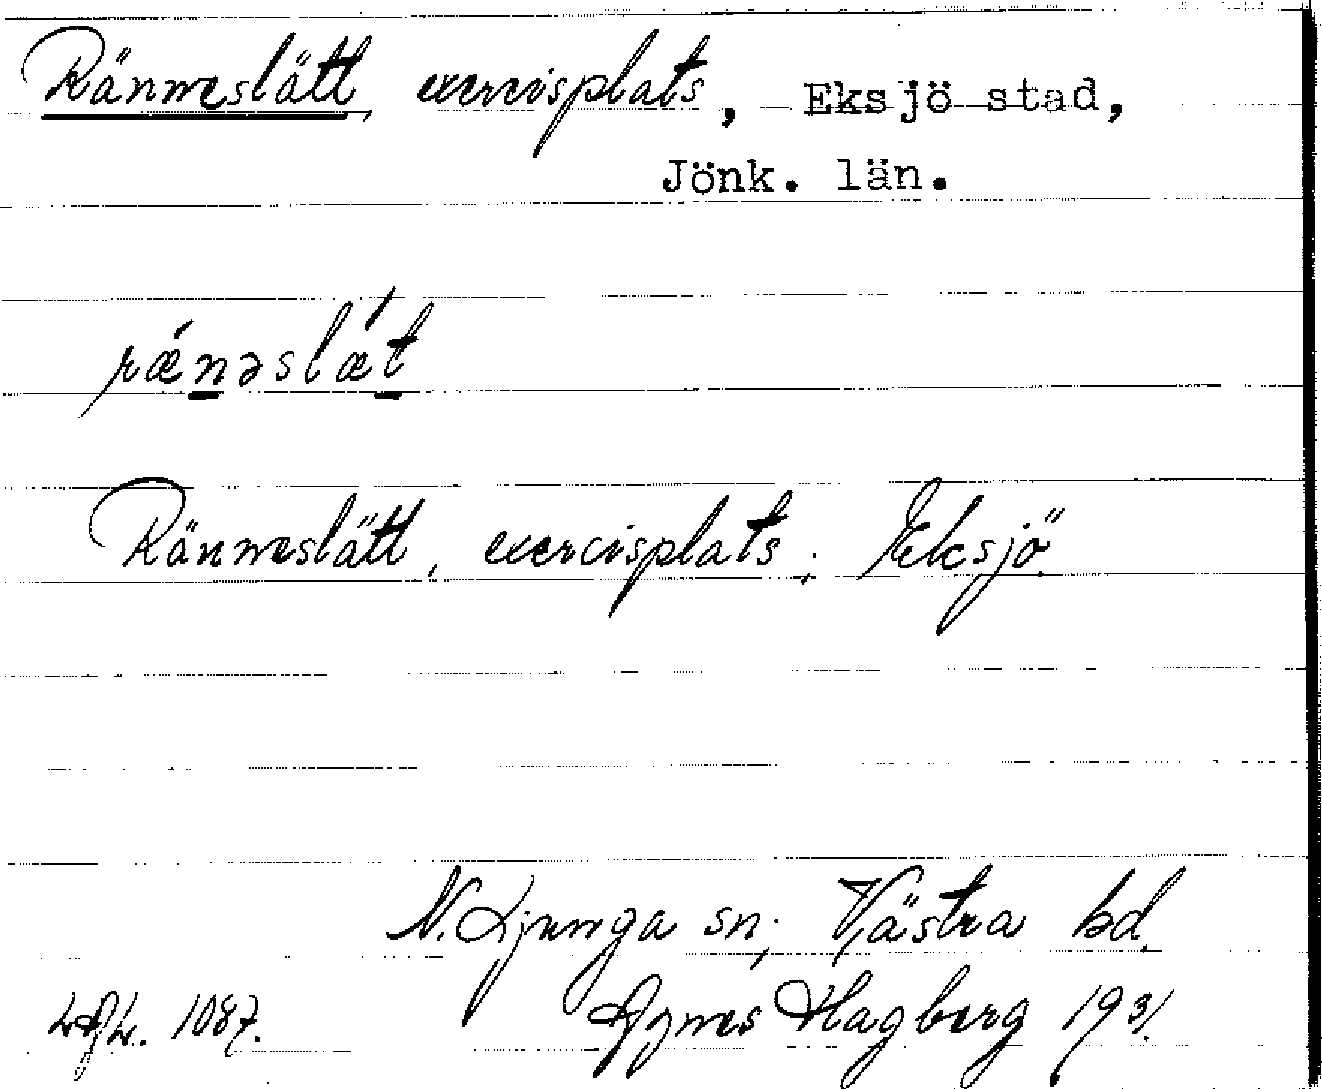 Ränneslätt, exercisplats, Eksjö stad,
Jönk. län.
rǽnəslǽt
Ränneslätt, exercisplats; Eksjö.
N. Ljunga sn; Västra hd.
LAL. 1087. Agnes Hagberg 1931.